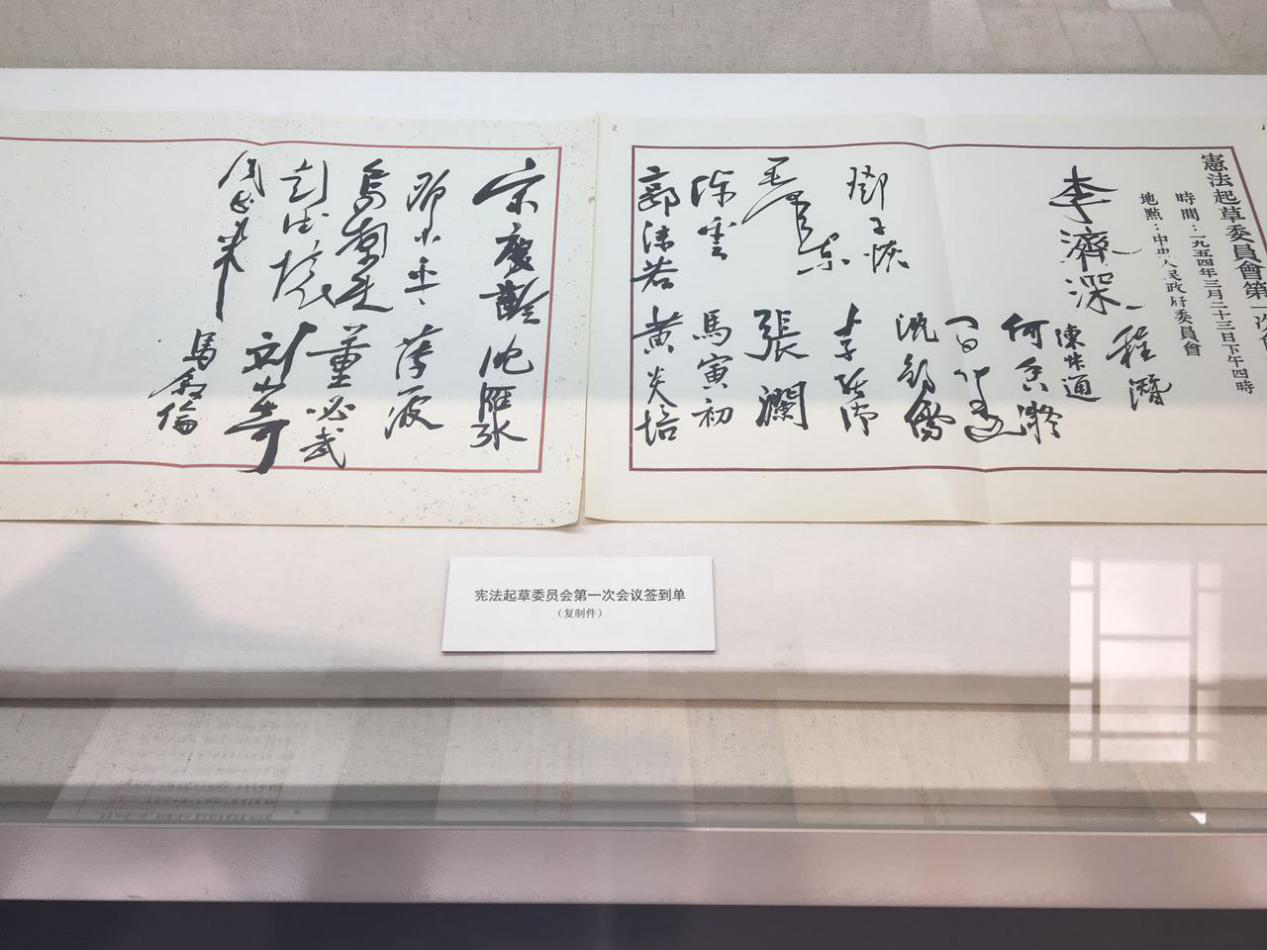 憲法起草委員會第一次會
時間:一九五四年三月二十三日下午四時
地點:中央人民政府委員會
李濟深
程潛
陳叔通
何香凝
鄧子恢
沈鈞儒
李維漢
毛澤東
張瀾
陳雲
馬寅初
郭沫若
黃炎培
2
宋慶齡
沈雁冰
鄧小平
薄一波
烏蘭夫
董必武
彭德懷
刘少奇
周恩来
馬叙倫
宪法起草委员会第一次会议签到单
(复制件)